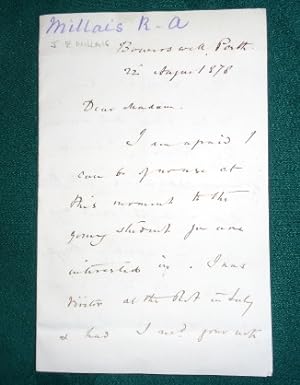 Millais R-A
J E MILLAIS
Bowerswell, Perth
22d August 1878
Dear Madam,
I am afraid I
can be of no use at
this moment to the
young student you are
interested in. I was
Visitor at the RA in July
& had I recd your note